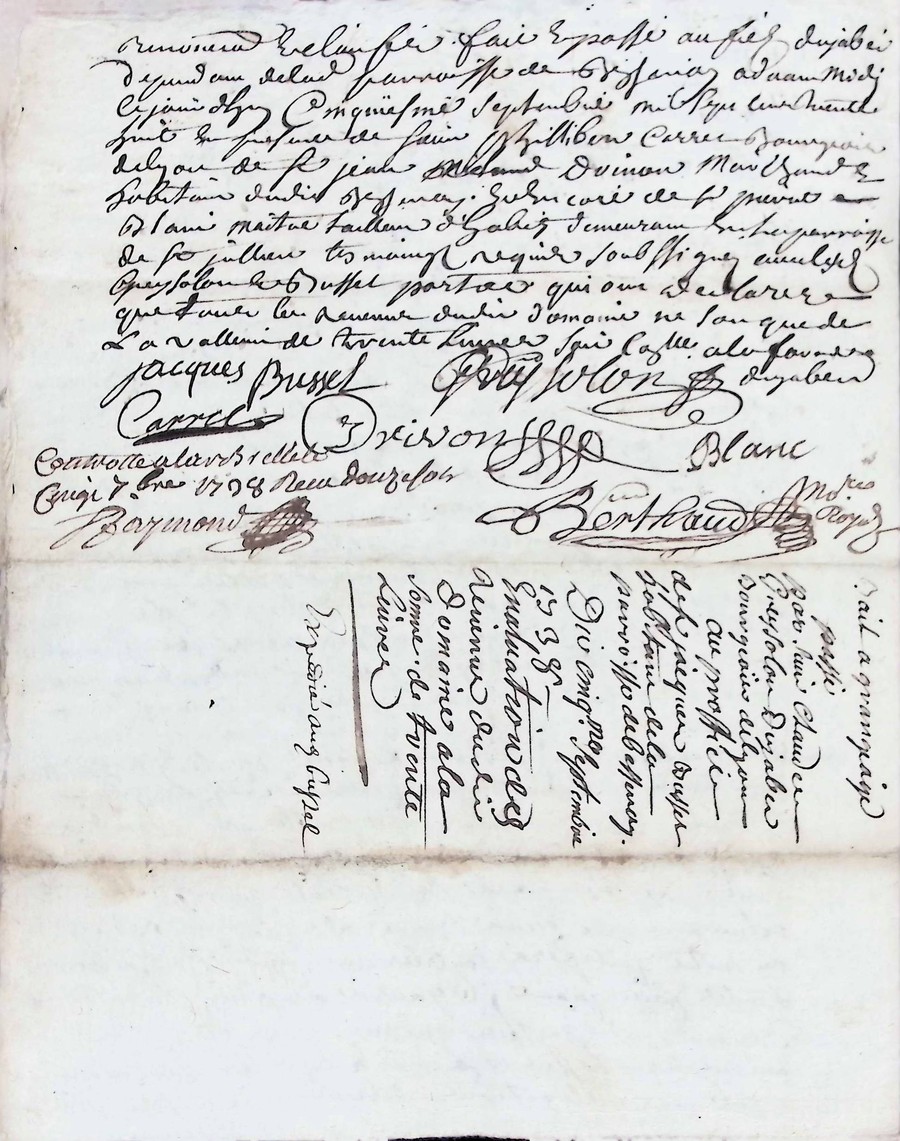 renoncia et clausées. fait et passé au fief dujabéi
dependam de lad parroisse de Bessenay avant midy
cejourdhuy Cinquiesme Septembre mil Sept cent trente
huit en presence de Sieur Phillibert Carret Bourgeois
de Lyon de Sr jean Drivon Marchand &
habitant dudit Bessenay. Et encore de Sr pierre
Blanc maitre tailleur d'habits demeurant en la parroisse
de St jullien temoins requis soubssignez avec lesd
Preyssolon & Bussel parties qui ont declaré
que tous les Revenus dudit domaine ne sont que de
La valleur de trente Livres
dujabeu
Jacques Bussel Preyssolon
Carret Drivon Blanc
Controllé a Larbrelle le
Cinq 7.bre 1738 Receu douze sols
Raymond Berthaud No.re Royal
Bail a grangeage
passé
Par Sieur Claude
Preyssolon Dujabeu
Bourgeois de Lyon
au proffit
de Sr jacques Bussel
habitant de la
parroisse de bessenay.
Du cinq.me Septembre
1738
Evaluation des
Revenus dudit
Domaine a la
somme de trente
Livres
Expédié aug Bussel